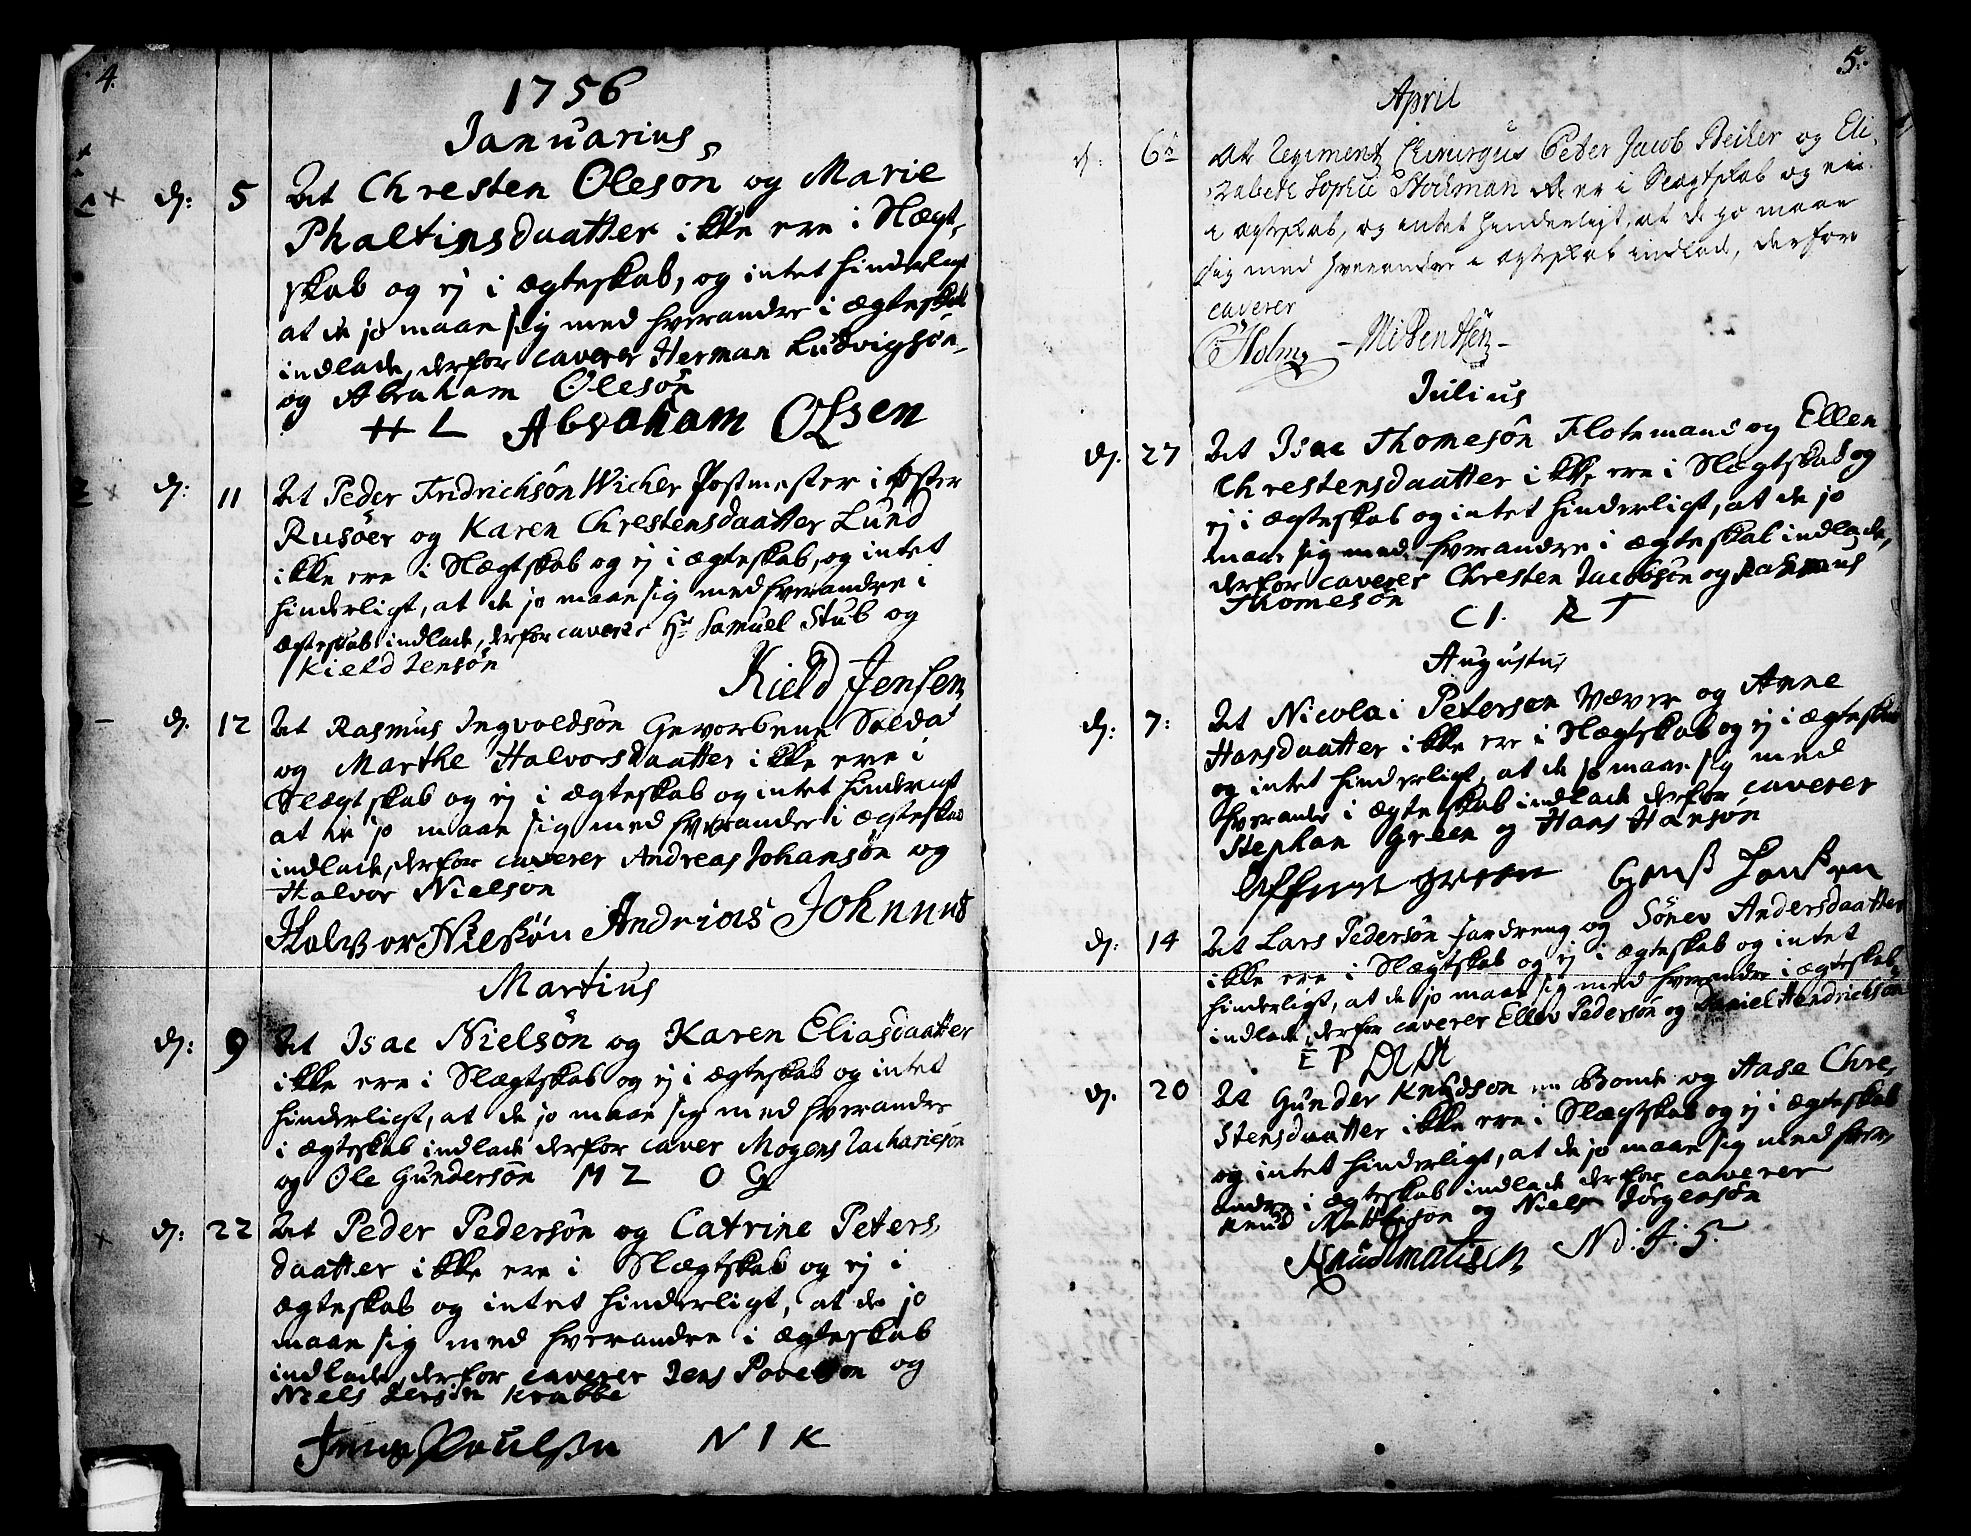 4.
1756
Januarius
d: 5 At Chresten Olesøn og Marie
Phaltinsdaatter ikke ere i Slægt,
skab og ej i ægteskab, og intet hinderligt
at de jo maae sig med hverandre i ægteskab
indlade, derfor caverer Herman Ludvigsøn
og Abraham Olesøn
H L Abraham OLsen
d: 11 At Peder Fridrichsøn Wicher Postmester i Øster
Rusøer og Karen Chrestensdaatter Lund
ikke ere i Slægtskab og ej i ægteskab, og intet
hinderligt, at de jo maae sig med hverandre i
ægteskab indlade, derfor caverer Hr Samuel Stub og
Kield Jensøn
Kield Jensen
d. 12 At Rasmus Ingvoldsøn Gevorbene Soldat
og Marthe Halvorsdaatter ikke ere i
Slægtskab og ej i ægteskab og intet hinderligt
at de jo maae sig med hverandre i ægteskab
indlade, derfor caverer Andreas Johansøn og
Halvor Nielsøn
Halvor Nielsøn Andrias Johnnus
Martius
d: 9 At Isac Nielsøn og Karen Eliasdaatter
ikke ere i Slægtskab og ej i ægteskab og intet
hinderligt, at de jo maae sig med hverandre
i ægteskab indlade derfor caver Mogens Zachariesøn
og Ole Gundersøn M Z O G
d: 22 At Peder Pedersøn og Catrine Peters
daatter ikke ere i Slægtskab og ej i
ægteskab og intet hinderligt, at de jo
maae sig med hverandre i ægteskab
indlade, derfor caverer Jens Povelsøn og
Niels Jersøn Krabbe
Jens Poulsen N I K
5.
April
d: 6te At Regiment Chirurgus Peder Jacob og Eli,
zabeth Sophie Stockman ikke er i Slægtskab og ei
i ægteskab, og intet hinderligt, at de jo maae
sig med hverandre i ægteskab indlade, derfor
caverer
Holm
Julius
d. 27 At Isac Thomesøn Flotemand og Ellen
Chrestensdaatter ikke ere i Slægtskab og
ej i ægteskab og intet hinderligt, at de jo
maae sig med hverandre i ægteskab indlade,
derfor caverer Chresten Jacobsøn og Rasmus
Thomesøn
C I. R T
Augustus
d: 7: At Nicolai Petersen Væver og Anne
Hansdaatter ikke ere i Slægtskab og ej i ægteskab
og intet hinderligt, at de jo maae sig med
hverandre i ægteskab indlade derfor caverer
Stephan Green og Hans Hansøn
d: 14 At Lars Pedersøn Jordreng og Sönev Andersdaatter
ikke ere i Slægtskab og ej i ægteskab og intet
hinderligt, at de jo maae sig med hverandre i ægteskab,
indlade derfor caverer Ellev Pedersøn og Daniel Hendrichsøn
E P
d. 20 At Gunder Knudsøn en Bonde og Aase Chre,
stensdaatter ikke ere i Slægtskab og ej i ægteskab
og intet hinderligt, at de jo maae sig med hver,
andre i ægteskab indlade derfor caverer
Knud Mathisøn og Niels Jørgensøn
Knud matisen N d. J. S.